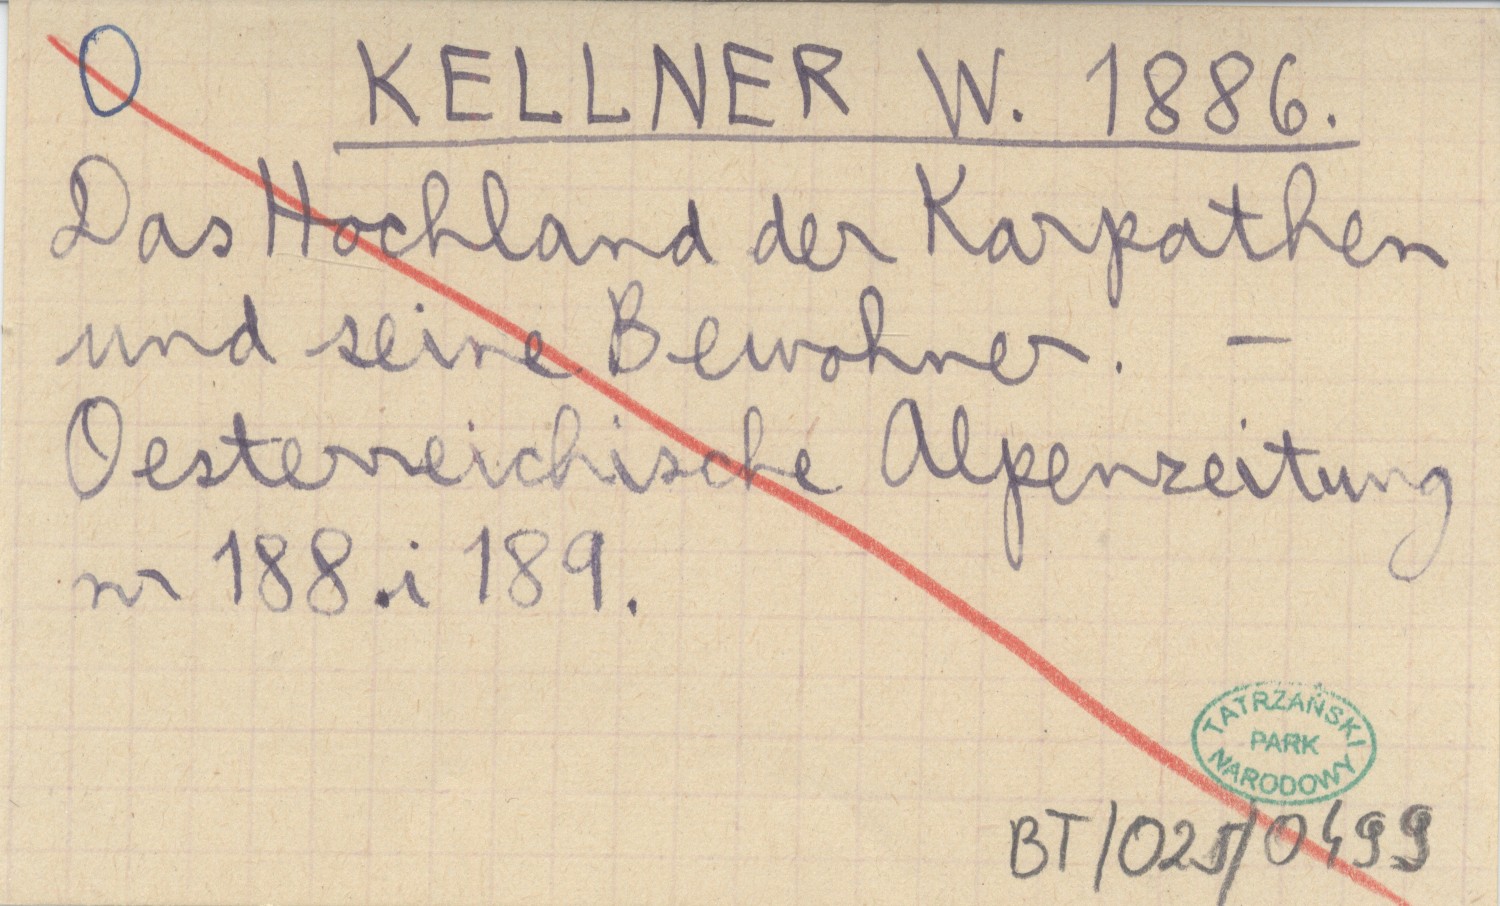 O KELLNER W. 1886.
Das Hochland der Karpathen
und seine Bewohner. –
Oesterreichische Alpenzeitung
nr 188 i 189.
TATRZAŃSKI
PARK
NARODOWY
BT/025/0499